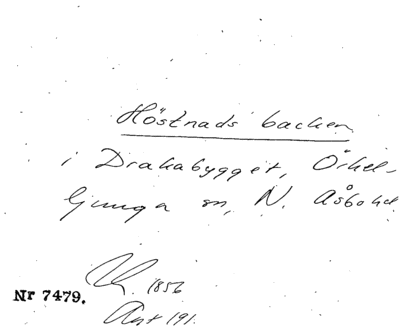 Höstnads backen
i Drakabygget, Örkel-
ljunga sn, N. Åsbo hd.
1856
Nr 7479.
Art 191.